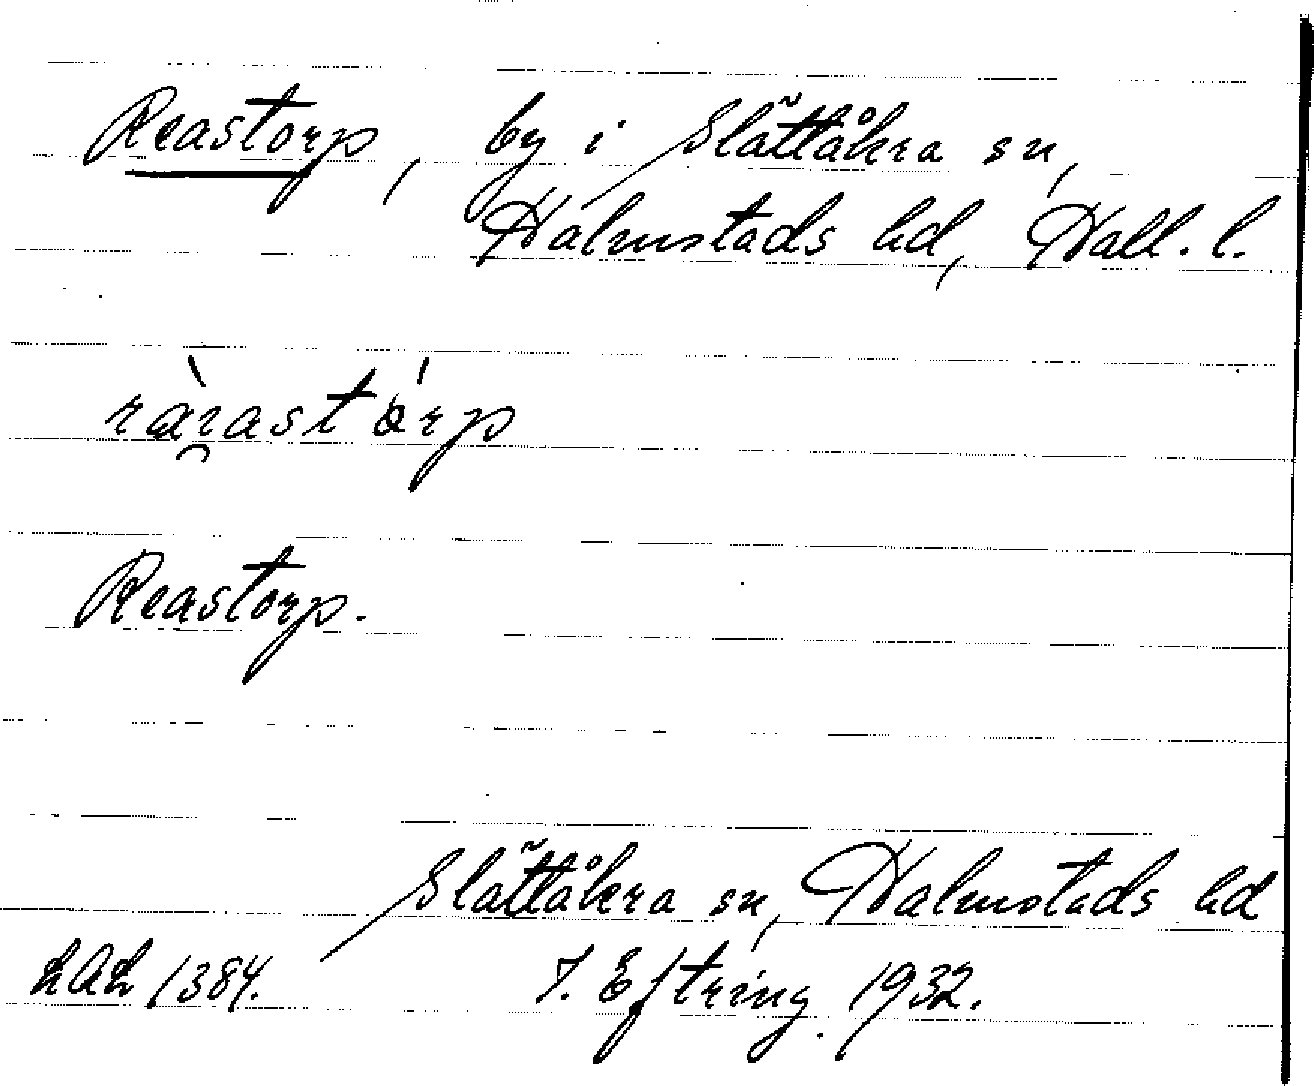 Reastorp, by i Slättåkra sn,
Halmstads hd, Hall. l.
Reastorp.
Slättåkra sn, Halmstads hd
LAL 1384. J. Eftring. 1932.